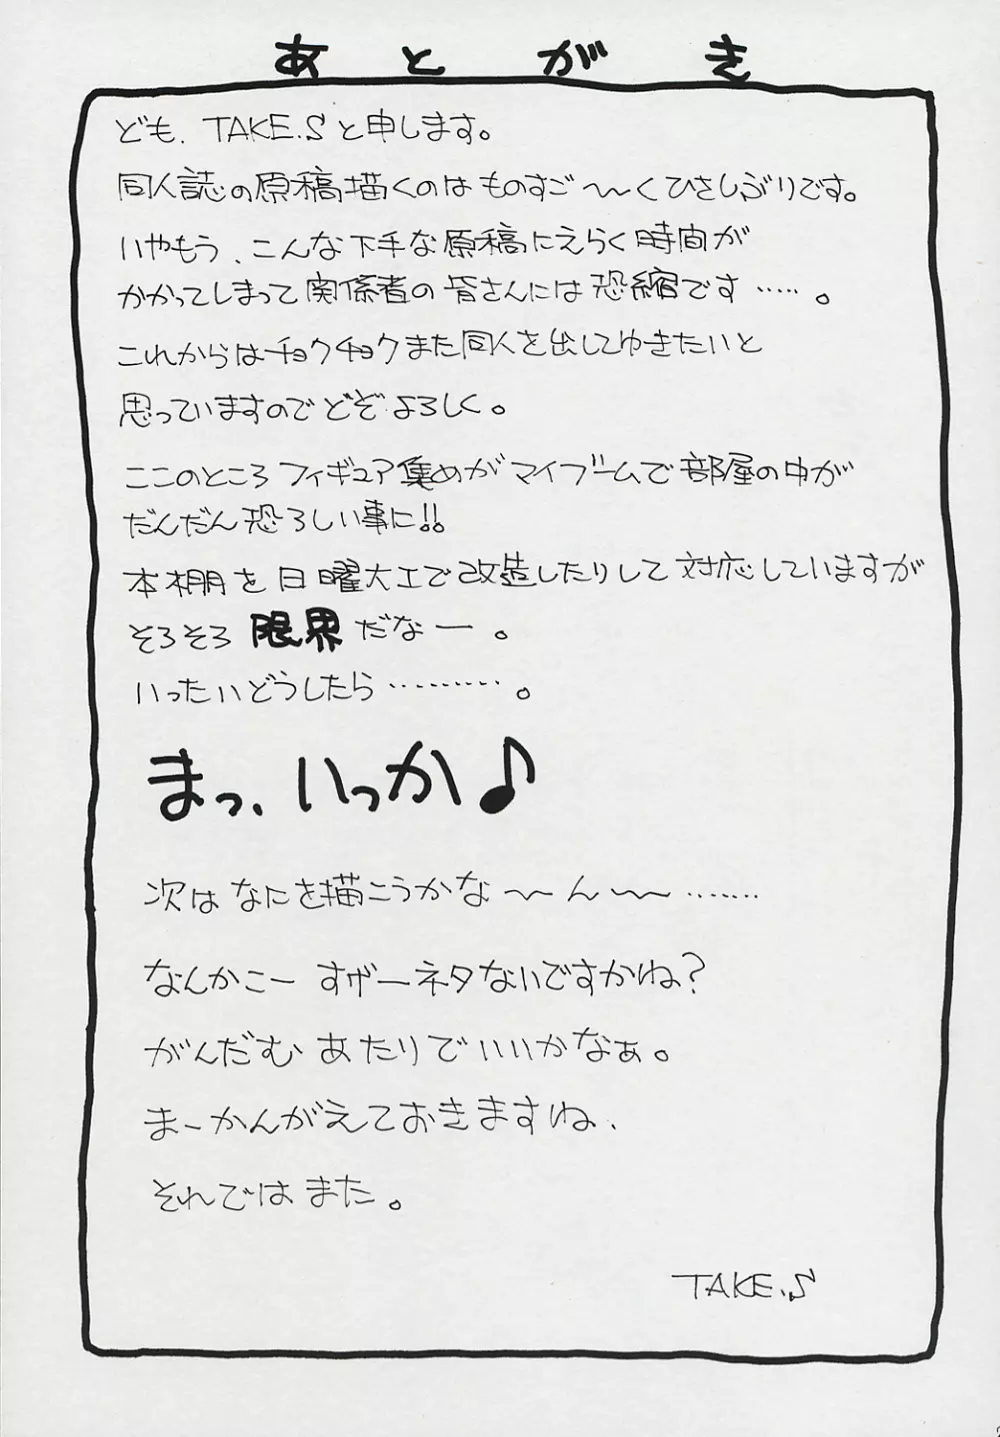 あとがき
ども、TAKE.Sと申します。
同人誌の原稿描くのはものすご〜〜くひさしぶりです。
いやもう、こんな下手な原稿にえらく時間が
かかってしまって関係者の皆さんには恐縮です……。
これからはチョクチョクまた同人を出してゆきたいと
思っていますのでどぞよろしく。
ここのところフィギュア集めがマイブームで部屋の中が
だんだん恐ろしい事に!!
本棚を日曜大工で改造したりして対応していますが
そろそろ限界だなー。
いったいどうしたら………。
まっ、いっか♪
次はなにを描こうかな〜〜ん〜〜……
なんかこー すげーネタないですかね?
がんだむあたりでいいかなぁ。
まーかんがえておきますね、
それではまた。
TAKE.S